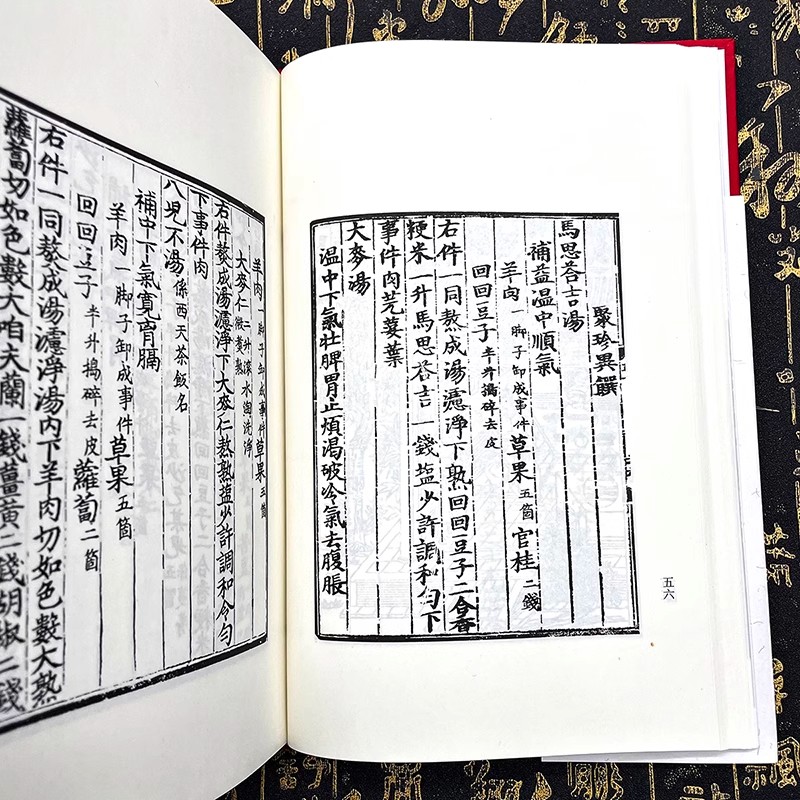 聚珍異饌
馬思荅吉湯
補益溫中順氣
羊肉一脚子卸成事件草果五箇官桂二錢
回回豆子半升搗碎去皮
右件一同熬成湯濾淨下熟回回豆子二合香
粳米一升馬思荅吉一錢塩少許調和勻下
事件肉芫荽葉
大麥湯
溫中下氣壯脾胃止煩渴破冷氣去腹脹
五六
羊肉一脚子卸成事件草果五箇
大麥仁二升滾水淘洗淨微煑熟
右件熬成湯濾淨下大麥仁熬熟塩少許調和令勻
下事件肉
八児不湯係西天茶飯名
補中下氣寬胷膈
羊肉一脚子卸成事件草果五箇
回回豆子半升搗碎去皮蘿蔔二箇
右件一同熬成湯濾淨湯內下羊肉切如色數大熟
蘿蔔切如色數大咱夫蘭一錢薑黃二錢胡椒二錢